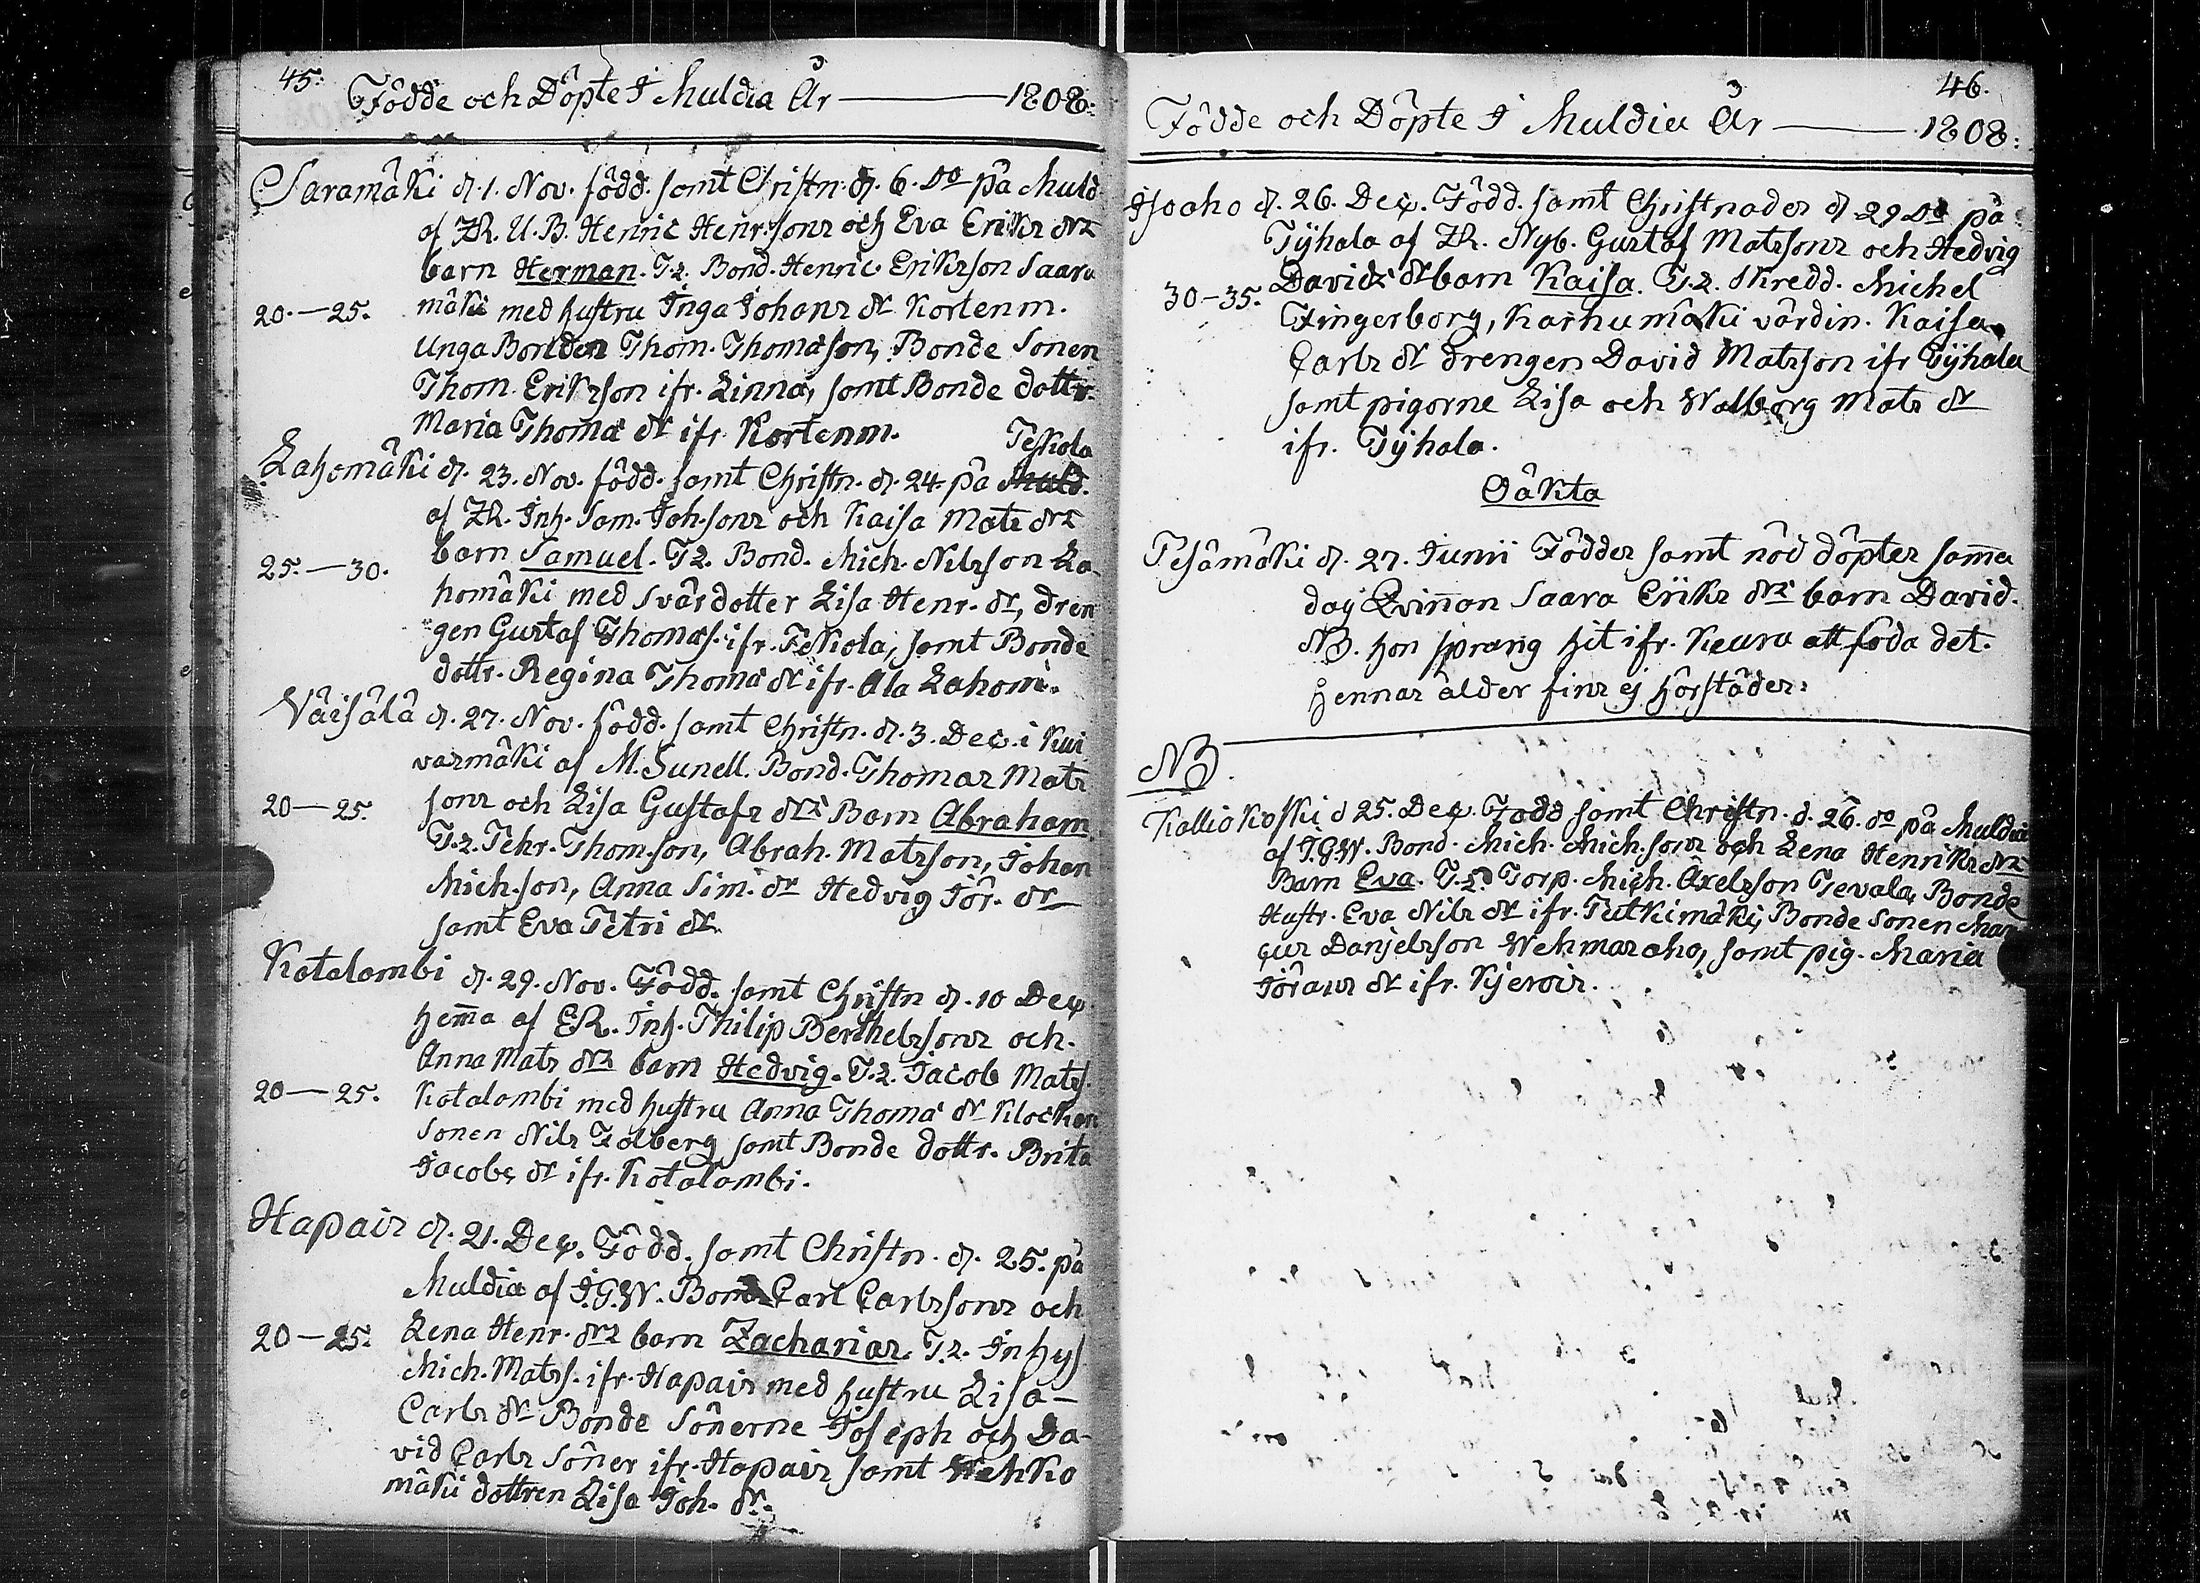 45.
Födde och Döpte I Muldia År — 1808:
Saramäki d. 1. Nov. född. samt Christn. d. 6. do på Muld
af ZR. U.B. Henric Henr.sons och Eva Eriks drs
barn Herman. T.2. Bond. Henric Erikson Saara
20.—25. mäki med hustru Inga Johans dr Kortenm.
Unga Bonden Thom. Thomasson, Bonde Sonen
Thom Erikson ifr. Linna, samt Bonde dottr.
Maria Thoma dr ifr Kortenm.
Peskola
Lahomäki d. 23. Nov. född. samt Christn. d. 24. på Muld.
af ZR. Inh. Sam. Joh.sons och Kaisa Mats drs
25.—30. barn Samuel. T2. Bond. Mich. Nilsson La
homäki med svärdotter Lisa Henr. dr, dren
gen Gustaf Thomas. ifr. Peskola, samt Bonde
dottr. Regina Thoma dr ifr. Ala Lahom.
Väisälä d. 27. Nov. född. samt Christn. d. 3. Dec. i Kui
vasmäki af M. Sunell. Bond. Thomas Mats
20—25. sons och Lisa Gustafs drs Barn Abraham
T.2. Pehr. Thom.son, Abrah. Matsson, Johan
Mich.son, Anna Sim. dr Hedvig Jör. dr
samt Eva Petri dr
Kotalambi d. 29. Nov. Född. samt Christn d. 10 Dec
hemma af ER. Inh. Philip Berthelssons och.
Anna Mats drs barn Hedvig. T.2. Jacob Mats.
20—25. Kotalambi med hustru Anna Thoma dr Klockan
Sonen Nils Zolberg samt Bonde dottr. Brita
Jacobs dr ifr. Kotalambi.
Hapais d. 21. Dec. Född. samt Christn. d. 25. på
Muldia af I.G.W. Bond. Carl Carlssons och
20—25. Lena Henr. drs barn Zacharias. T.2. Inhys
Mich. Mats. ifr. Hapais med hustru Lisa—
Carls dr Bonde Sönerne Joseph och Da-
vid Carls Söner ifr. Hapais samt Wehko
mäki dottren Lisa Joh. dr.
46.
Födde och Döpte I Muldia År — 1808:
Isoaho d. 26. Dec. Född. samt Christnades d. 29 do på
Tyhala af ZR. Nyb. Gustaf Matssons och Hedvig
Davids dr barn Kaisa. T.2. Skredd. Michel
30—35. Fingerborg, Karhumäki värdin. Kaisa
Carls dr drengen David Matsson ifr Tyhala
samt pigorne Lisa och Walborg Mats dr
ifr. Tyhala.
Oäkta
Pesämäki d. 27. Junii Föddes samt nöd döptes samma
dag Qvinnan Saara Eriks drs barn David.
NB. hon sprang hit ifr. Keuru att föda det.
Hennas ålder fins ej förståder:
NB.
Kalliokoski d 25. Dec. Född samt Christn. d. 26. do på Muldia
af I.G.W. Bond. Mich. Mich.sons och Lena Henriks drs
Barn Eva. T.2. Torp. Mich. Axelsson Tevala, Bonde
Hustr. Eva Nils dr ifr. Putkimäki, Bonde Sonen Mar
cus Danjelsson Wehmasaho, samt pig. Maria
Jörans dr ifr.